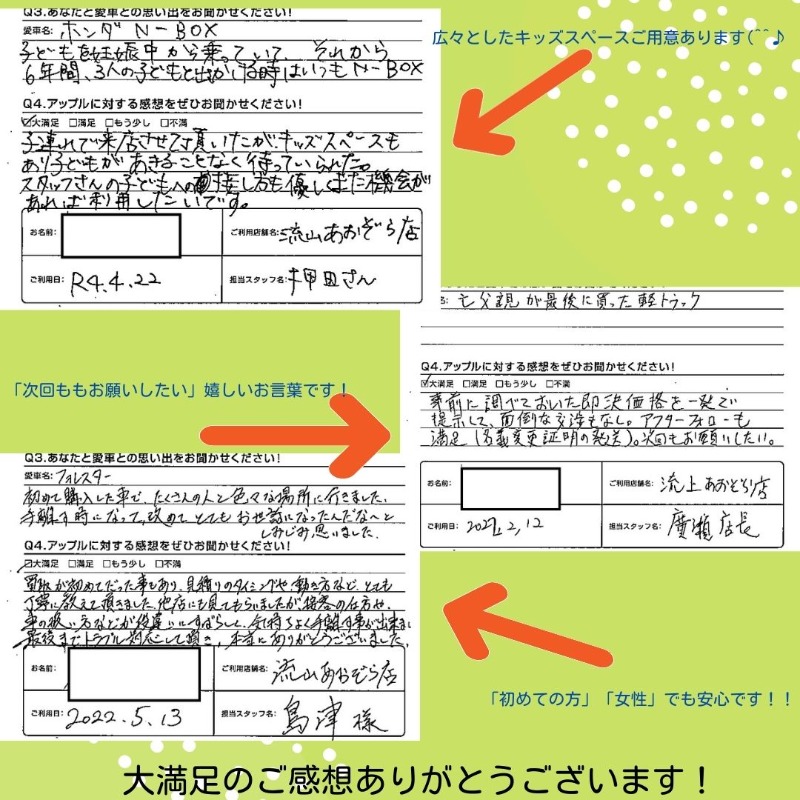 Q3.あなたと愛車との思い出をお聞かせください!
愛車名: ホンダ N-BOX
子どもを妊娠中から乗っていて、それから
6年間、3人の子どもと出かける時はいつもN-BOX
Q4.アップルに対する感想をぜひお聞かせください!
☑大満足 □満足 □もう少し □不満
子連れで来店させて頂いたが、キッズスペースも
あり子どもがあきることなく待っていられた。
スタッフさんの子どもへの接し方も優しくまた機会が
あれば利用したいです。
お名前:
ご利用店舗名: 流山あおぞら店
ご利用日: R4.4.22
担当スタッフ名: 押田さん
広々としたキッズスペースご用意あります(^^♪
亡父親が最後に買った軽トラック
Q4.アップルに対する感想をぜひお聞かせください!
☑大満足 □満足 □もう少し □不満
事前に調べておいた即決価格を一発で
提示して、面倒な交渉もなし。アフターフォローも
満足(名義変更証明の発送)。次回もお願いしたい。
お名前:
ご利用店舗名: 流山あおぞら店
ご利用日: 2022.2.12
担当スタッフ名: 廣瀬店長
「次回ももお願いしたい」嬉しいお言葉です!
Q3.あなたと愛車との思い出をお聞かせください!
愛車名: フォレスター
初めて購入した車で、たくさんの人と色々な場所に行きました。
手離す時になって、改めて、とてもお世話になったんだな〜と
しみじみ思いました。
Q4.アップルに対する感想をぜひお聞かせください!
☑大満足 □満足 □もう少し □不満
買取が初めてだった事もあり、見積りのタイミングや、動き方など、とても
丁寧に教えて頂きました。他店にも見てもらいましたが接客の仕方や、
車の扱い方などが段違いにすばらしく、気持ちよく手離す事が出来ました
最後までトラブル対応して頂き、本当にありがとうございました。
お名前:
ご利用店舗名: 流山あおぞら店
ご利用日: 2022.5.13
担当スタッフ名: 島津様
「初めての方」「女性」でも安心です!!
大満足のご感想ありがとうございます!